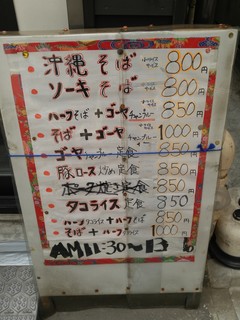 沖縄そば 800円
ソーキそば 800円
ハーフそば+ゴーヤチャンプルー 850円
そば+ゴーヤチャンプルー 1000円
ゴーヤチャンプルー定食 850円
豚ロース炒め定食 850円
ポーク焼き定食 850
タコライス定食 850
ハーフタコライス+ハーフそば 850円
そば+ハーフ 1000円
AM11:30～13